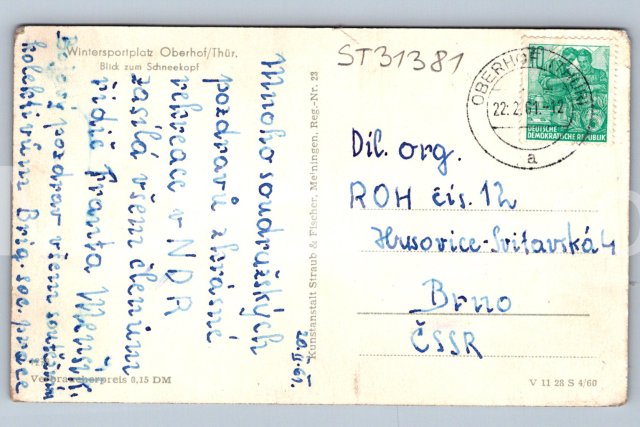 Wintersportplatz Oberhof/Thür.
Blick zum Schneekopf
ST31381
Mnoho soudružských
pozdravů z krásné
rekreace v NDR
zasílá všem členům
řidič Franta
20.II.61.
pozdrav všem
kolektivům Brig. soc. práce
Verbraucherpreis 0,15 DM
Kunstanstalt Straub & Fischer, Meiningen, Reg.-Nr. 23
OBERHOF
22.2.61.-12
a
10
DEUTSCHE
DEMOKRATISCHE REPUBLIK
Díl. org.
ROH čís. 12
Husovice-Svitavská 4
Brno
ČSSR
V 11 28 S 4/60